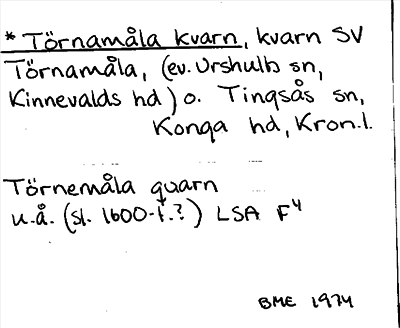 * Törnamåla kvarn, kvarn SV
Törnamåla, (ev. Urshults sn,
Kinnevalds hd) o. Tingsås sn,
Konga hd, Kron.l.
Törnemåla quarn
u.å. (sl. 1600-t.?) LSA F4
BME 1974